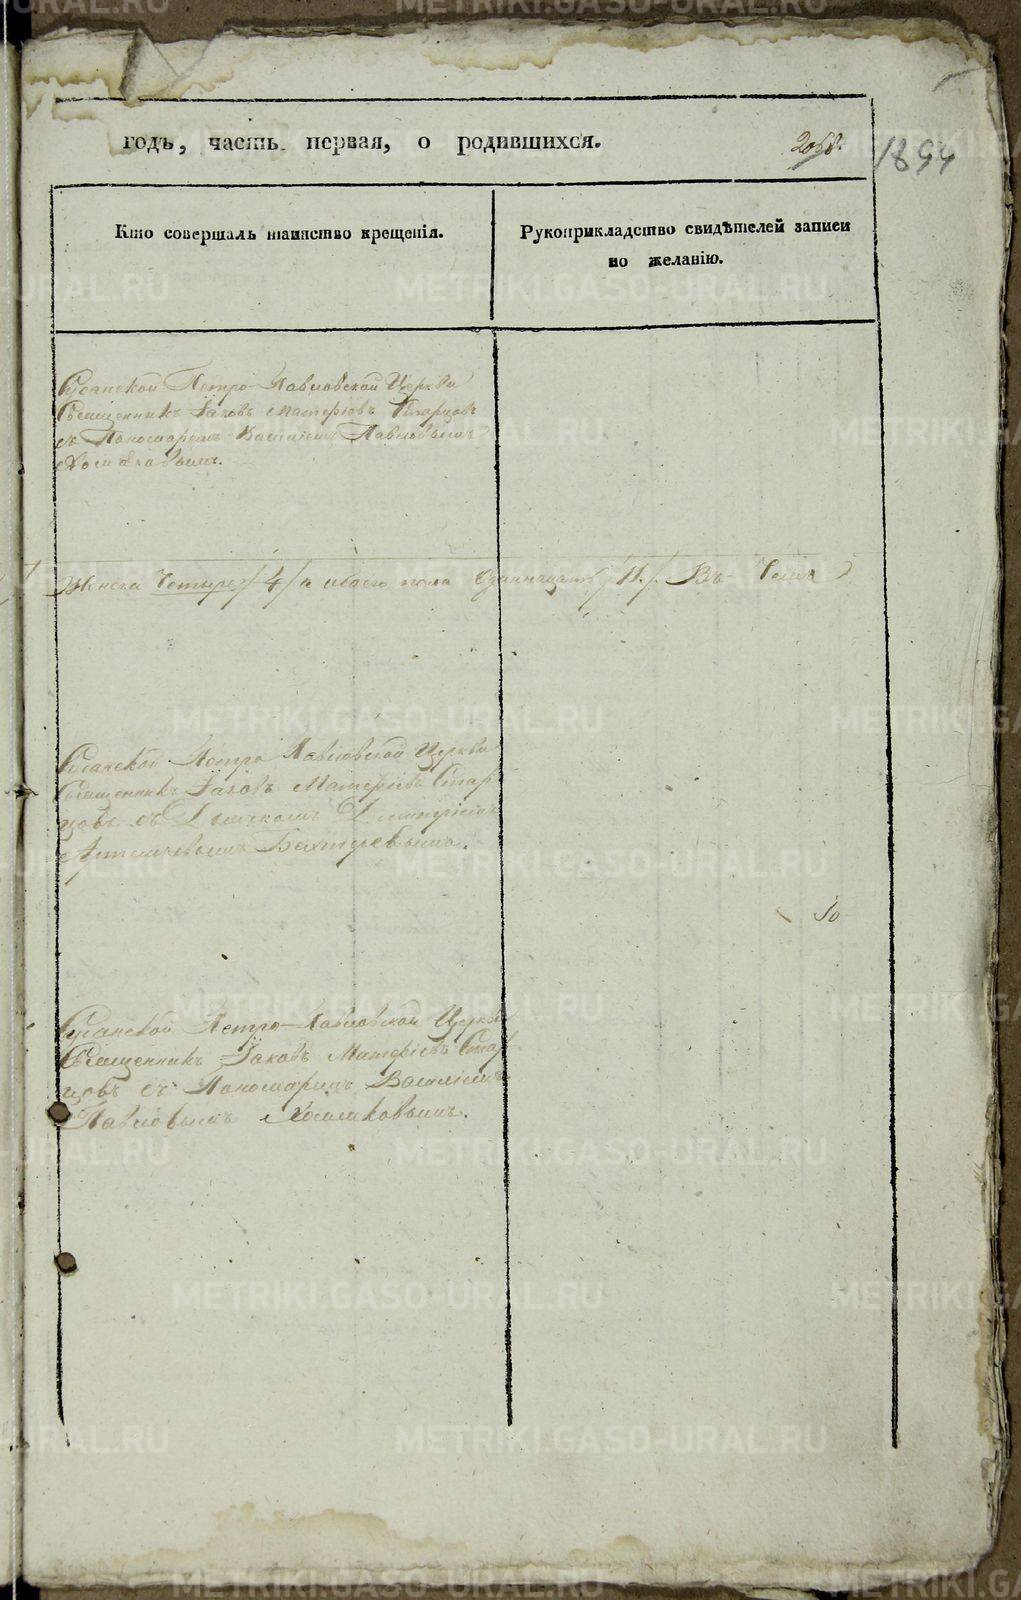 годъ, часть первая, о родившихся.
2068.
1894
Кто совершалъ таинство крещенія.
Рукоприкладство свидѣтелей записи
по желанію.
Сусанской Петро-Павловской Церкви
Священникъ Іаковъ Матѳіевъ Старцовъ
съ Пономаремъ Василіемъ Павловымъ
Хомяковымъ.
Женска Четыре /4/ а обоего пола Одиннацать /11./ Въ
Сусанской Петро Павловской Церкви
Священникъ Іаковъ Матѳіевъ Стар
цовъ съ Дьячкомъ Димитріемъ
Бехтеревымъ.
10
Сусанской Петро-Павловской Церкви
Священникъ Іаковъ Матѳіевъ Стар
цовъ съ Пономаремъ Василіемъ
Павловымъ Хомяковымъ.
METRIKI.GASO-URAL.RU